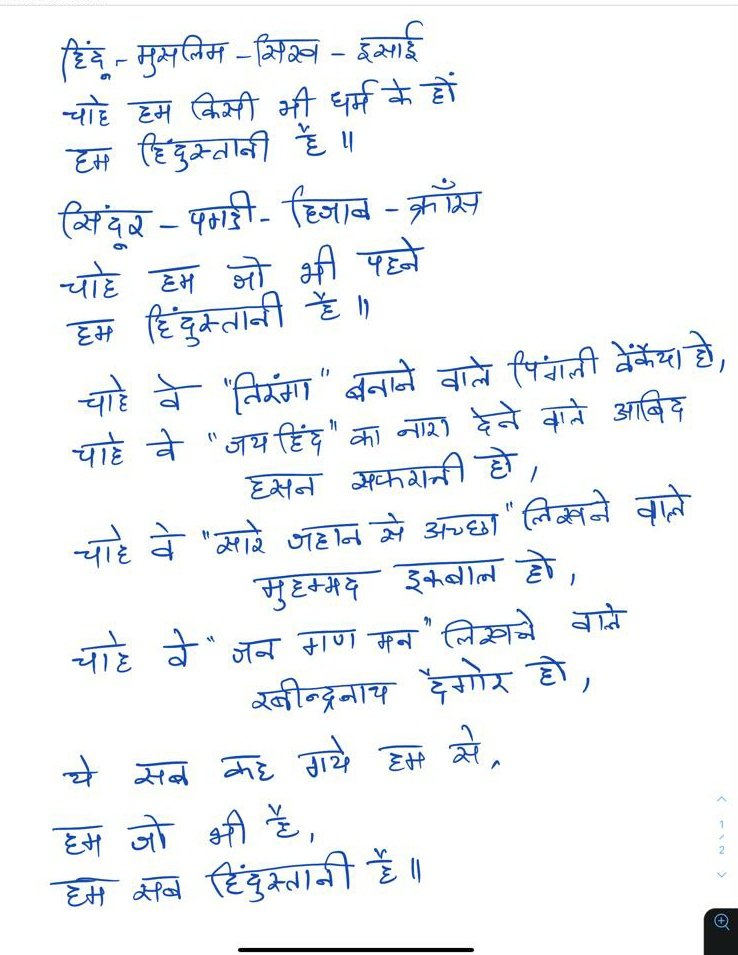 हिंदू - मुसलिम - सिख - इसाई
चाहे हम किसी भी धर्म के हों
हम हिंदुस्तानी हैं ॥
सिंदूर - पगडी - हिजाब - क्रॉंस
चाहे हम जो भी पहने
हम हिंदुस्तानी हैं ॥
चाहे वे "तिरंगा" बनाने वाले पिंगली वेंकैया हो,
चाहे वे "जय हिंद" का नारा देने वाले आबिद
हसन सफरानी हो,
चाहे वे "सारे जहान से अच्छा" लिखने वाले
मुहम्मद इकबाल हो,
चाहे वे "जन गण मन" लिखने वाले
रबीन्द्रनाथ टैगोर हो,
ये सब कह गये हम से,
हम जो भी हैं,
हम सब हिंदुस्तानी हैं ॥
1
/
2